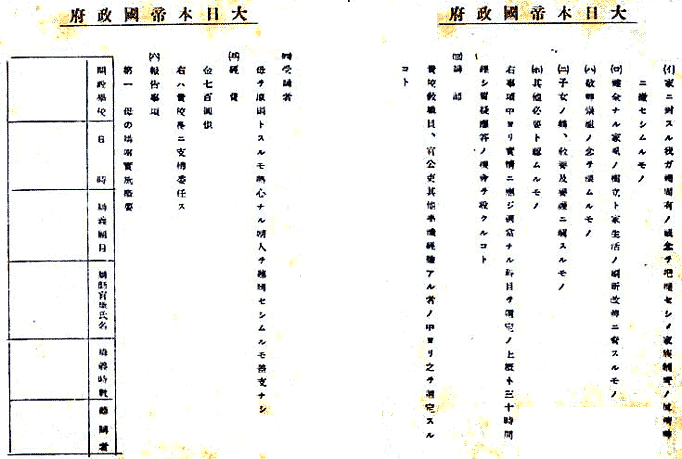 大日本帝國政府
(イ)家ニ対スル我ガ國固有ノ観念ヲ把握セシメ家族制度ノ
ニ徹セシムルモノ
(ロ)健全ナル家風ノ樹立ト家生活ノ刷新改善ニ資スルモノ
(ハ)敬神崇祖ノ念ヲムルモノ
(ニ)子女ノ躾、教養及養護ニ關スルモノ
(ホ)其他必要ト認ムルモノ
右事項中ヨリ實情ニ應ジ適當ナル科目ヲ選定ノ上概ネ三十時間
シ質疑應答ノ機會ヲ設クルコト
(三)講師
貴校教職員、官公吏其他學識經驗アル者ノ中ヨリ之ヲ選定スル
コト
大日本帝國政府
(四)受講者
母ヲ原則トスルモ熱心ナル婦人ヲ聽講セシムルモ差支ナシ
(五)經費
金七百圓也
右ハ貴校長ニ支拂委任ス
(六)報告事項
第一 母の講座實施概要
開設學校
日時
講義題目
講師官職氏名
講義時數
聽講者